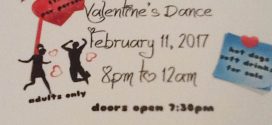 per person
Valentine's Dance
February 11, 2017
8pm to 12am
hot dogs
soft drinks
for sale
adults only
doors open 7:30pm